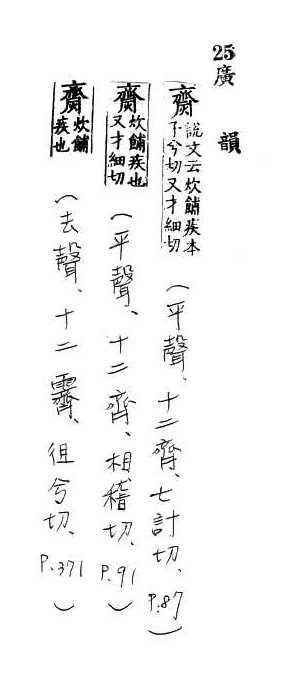 25廣韻
齌 說文云炊餔疾本子兮切又才細切(平聲、十二齊、七計切、P.87)
齌 炊餔疾也又才細切(平聲、十二齊、相稽切、P.91)
齌 炊餔疾也(去聲、十二霽、徂兮切、P.371)